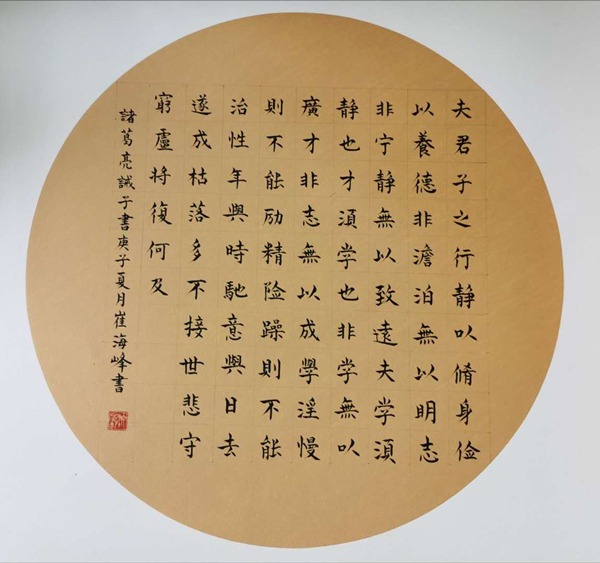 夫君子之行静以脩身俭
以養德非澹泊無以明志
非宁静無以致遠夫学須
静也才須学也非学無以
廣才非志無以成學淫慢
則不能励精险躁則不能
治性年與時馳意與日去
遂成枯落多不接世悲守
窮盧将復何及
諸葛亮誡子書庚子夏月崔海峰書